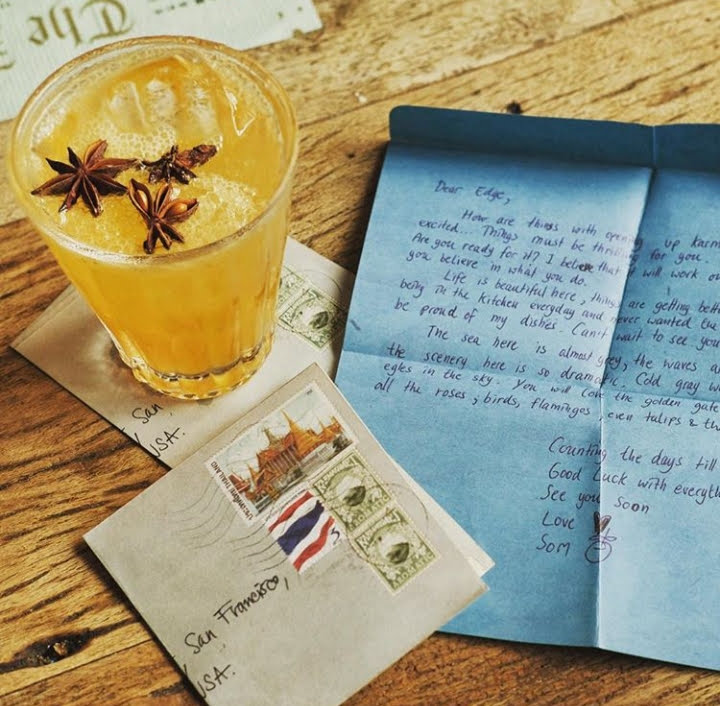 The
Dear Edge,
How are things with opening up karm
excited... Things must be thrilling for you.
Are you ready for it? I believe that it will work ou
you believe in what you do.
Life is beautiful here, things are getting bette
being in the kitchen everyday and never wanted
be proud of my dishes. Can't wait to see you
The sea here is almost grey, the waves a
the scenery here is so dramatic. Cold gray w
egles in the sky. You will love the golden gate
all the roses, birds, flamingos, even tulips & th
Counting the days till
Good Luck with everyth
See you soon
Love
Som
San
USA.
THAILAND
San Francisco,
USA.